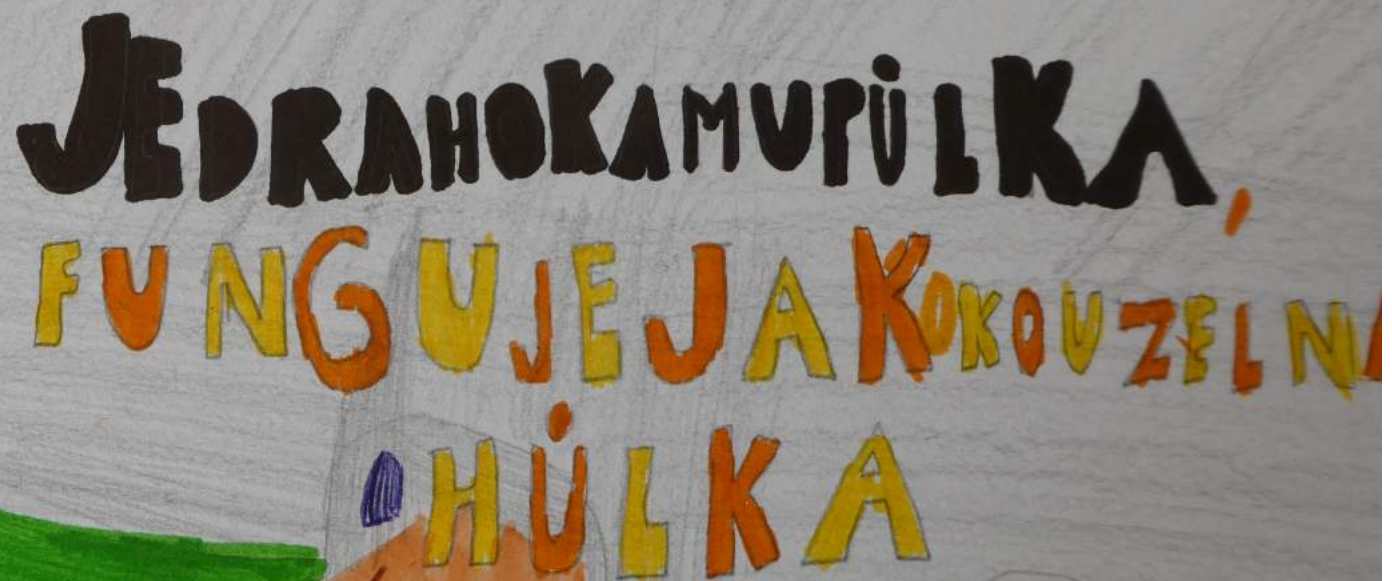 JE DRAHOKAMU PŮLKA,
FUNGUJE JAKO KOUZELNÁ
HŮLKA